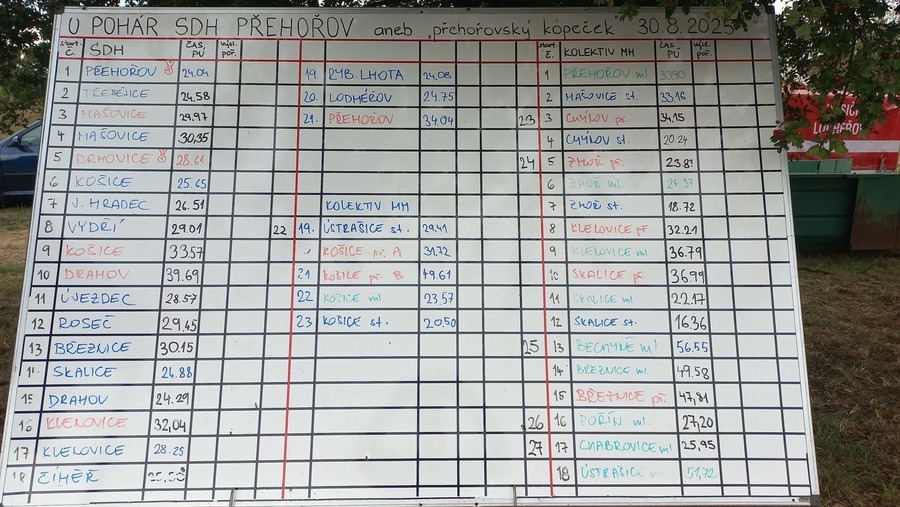 O POHÁR SDH PŘEHOŘOV aneb „přehořovský kopeček" 30.8.2025
start. č. SDH ČAS, PÚ výsl. poř.
1 PŘEHOŘOV 24.04
2 TŘEBĚJICE 24.58
3 MAŠOVICE 29.97
4 MAŠOVICE 30,35
5 DRHOVICE 28.61
6 KOŠICE 25.65
7 J. HRADEC 26.51
8 VYDŘÍ 29.01
9 KOŠICE 33.57
10 DRAHOV 39.69
11 ÚJEZDEC 28.57
12 ROSEČ 29.45
13 BŘEZNICE 30.15
14. SKALICE 24.88
15 DRAHOV 24.29
16 KLENOVICE 32,04
17 KLENOVICE 28.25
18 ČÍMĚŘ
19. RYB. LHOTA 24,08
20. LODHÉŘOV 24.75
21. PŘEHOŘOV 34.04
KOLEKTIV MH
22 19. ÚSTRAŠICE st. 29.41
KOŠICE př. A 31,72
21 KOŠICE př. B 49.61
22 KOŠICE ml. 23,57
23 KOŠICE st. 20.50
start. č. KOLEKTIV MH ČAS, PÚ výsl. poř.
1 PŘEHOŘOV ml. 30.90
2 MAŠOVICE st. 33.16
23 3 CHÝNOV př. 34,15
4 CHÝNOV st. 20.24
24 5 ZHOŘ př. 23.81
6 ZHOŘ ml. 24.37
7 ZHOŘ st. 18.72
8 KLENOVICE př. 32.21
9 KLENOVICE ml. 36.79
10 SKALICE př. 36.99
11 SKALICE ml. 22.17
12 SKALICE st. 16.36
25 13 BECHYNĚ ml. 56.55
14 BŘEZNICE ml. 49.58
15 BŘEZNICE př. 47,81
26 16 POŘÍN ml. 27,20
27 17 CHABROVICE ml 25,95
18 ÚSTRAŠICE ml. 51,72